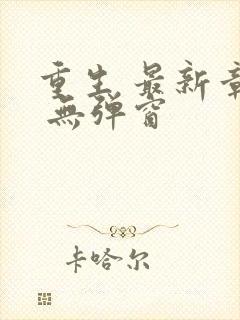 重生 最新章
無弹窗
卡哈尔